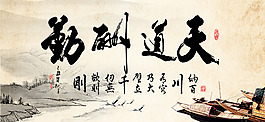 天道酬勤
纳百川有容乃大壁立千仞无欲则刚